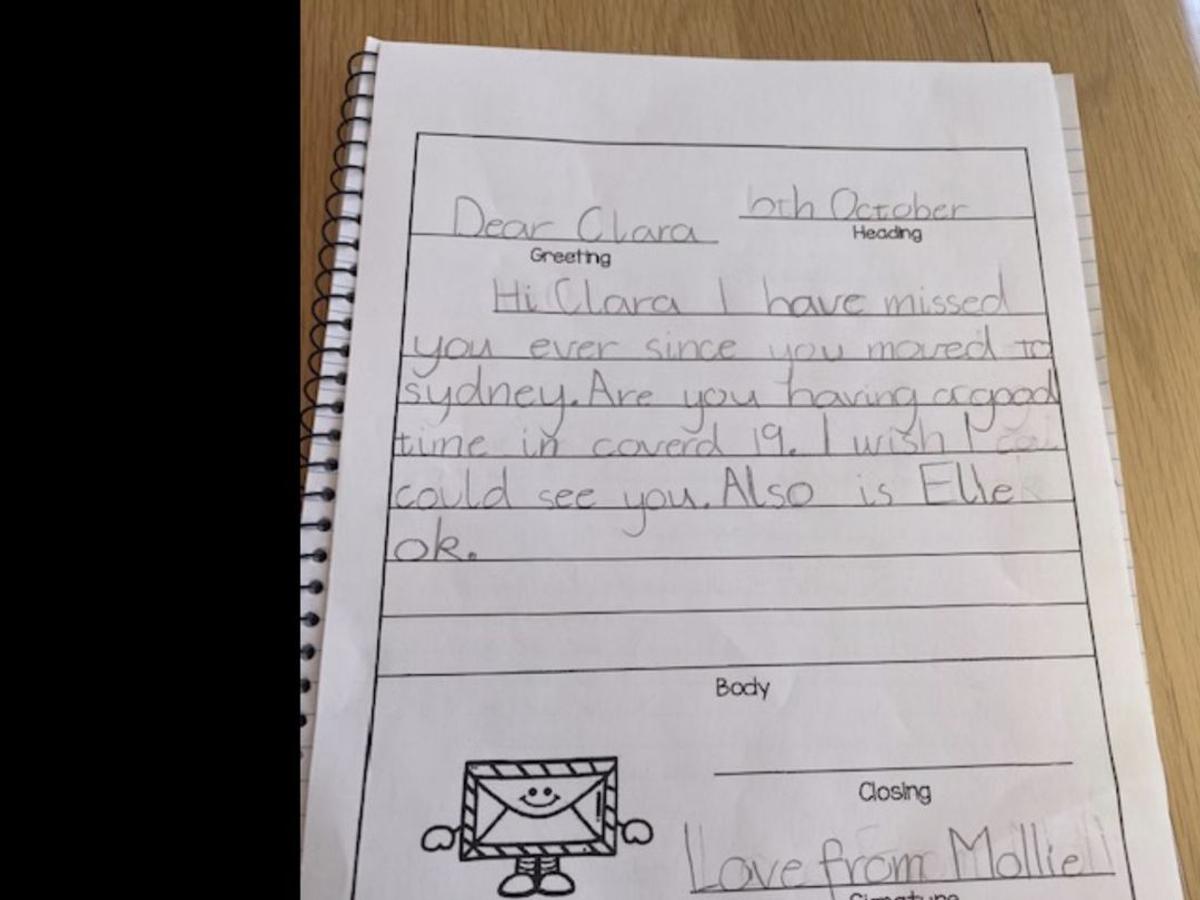 Dear Clara
6th October
Greeting
Heading
Hi Clara I have missed
you ever since you moved to
sydney. Are you having a good
time in coverd 19. I wish I
could see you. Also is Ellie
ok.
Body
Closing
Love from Mollie
Signature